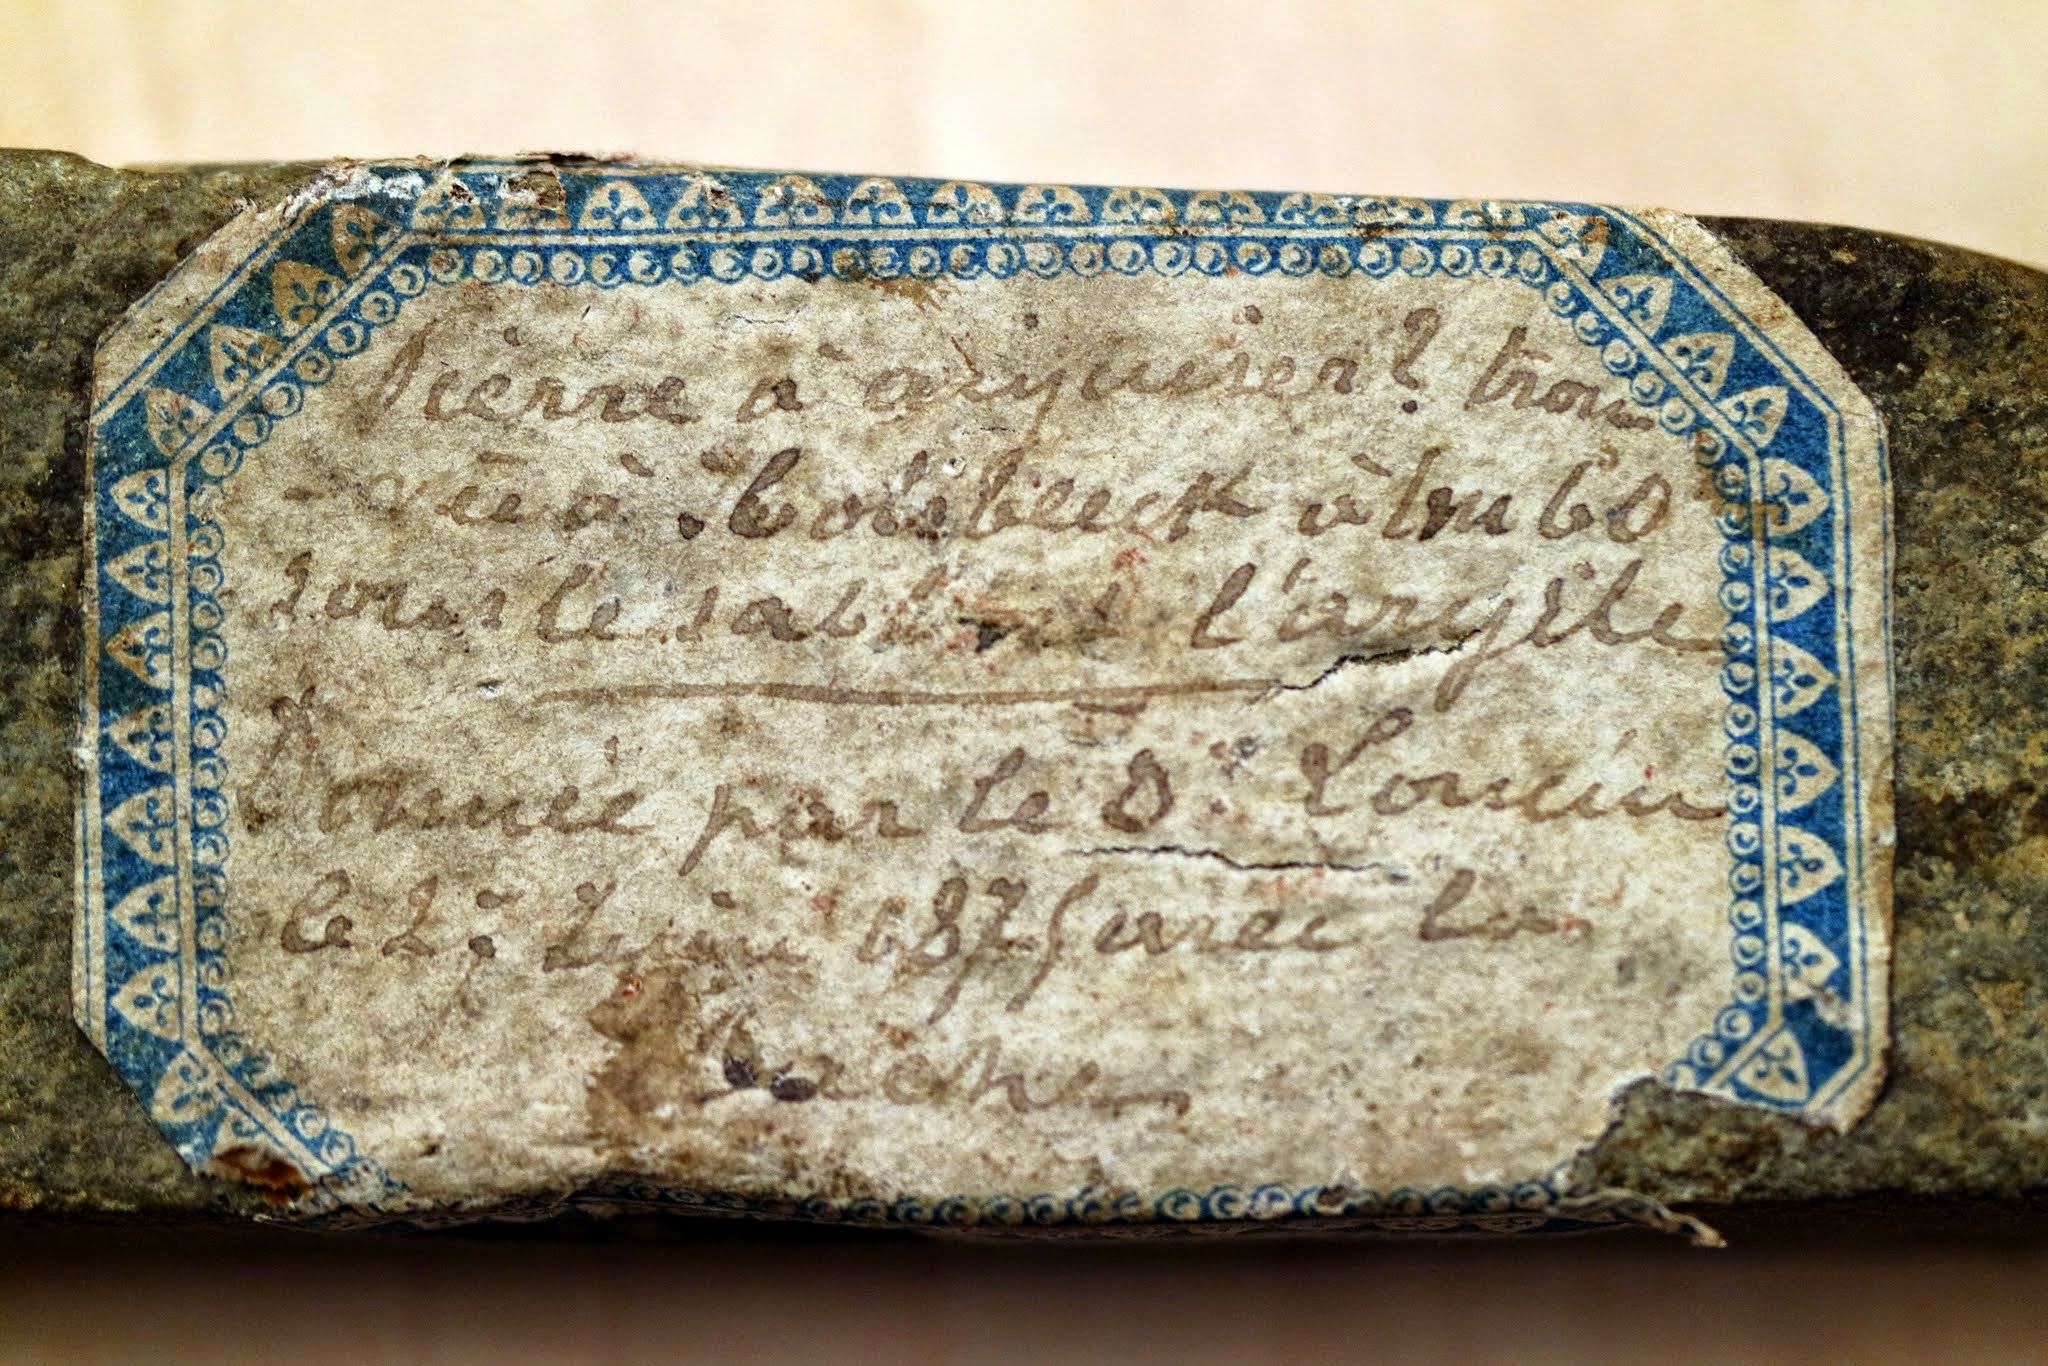 Pierre à aiguiser? trou
- vée à Bolsbeeck à 1m60
sous le sable et l'argile
Donnée par le Dr
le 2 1875 avec la
hache